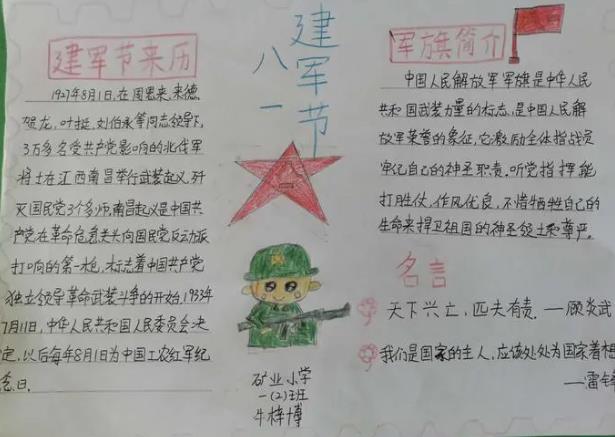 建军节来历
1927年8月1日，在周恩来、朱德、
贺龙，叶挺，刘伯承等同志领导下，
3万多名受共产党影响的北伐军
将士在江西南昌举行武装起义，歼
灭国民党3个多师，南昌起义是中国共
产党在革命危急关头向国民党反动派
打响的第一枪，标志着中国共产党
独立领导革命武装斗争的开始，1933年
7月11日，中华人民共和国人民委员会决
定，以后每年8月1日为中国工农红军纪
念日.
八一
建军节
矿业小学
一(2)班
牛梓博
军旗简介
中国人民解放军军旗是中华人民
共和国武装力量的标志，是中国人民解
放军荣誉的象征，它激励全体指战员
牢记自己的神圣职责.听党指挥能
打胜仗，作风优良，不惜牺牲自己的
生命来捍卫祖国的神圣领土和尊严。
名言
天下兴亡，匹夫有责.——顾炎武
我们是国家的主人，应该处处为国家着想
——雷锋